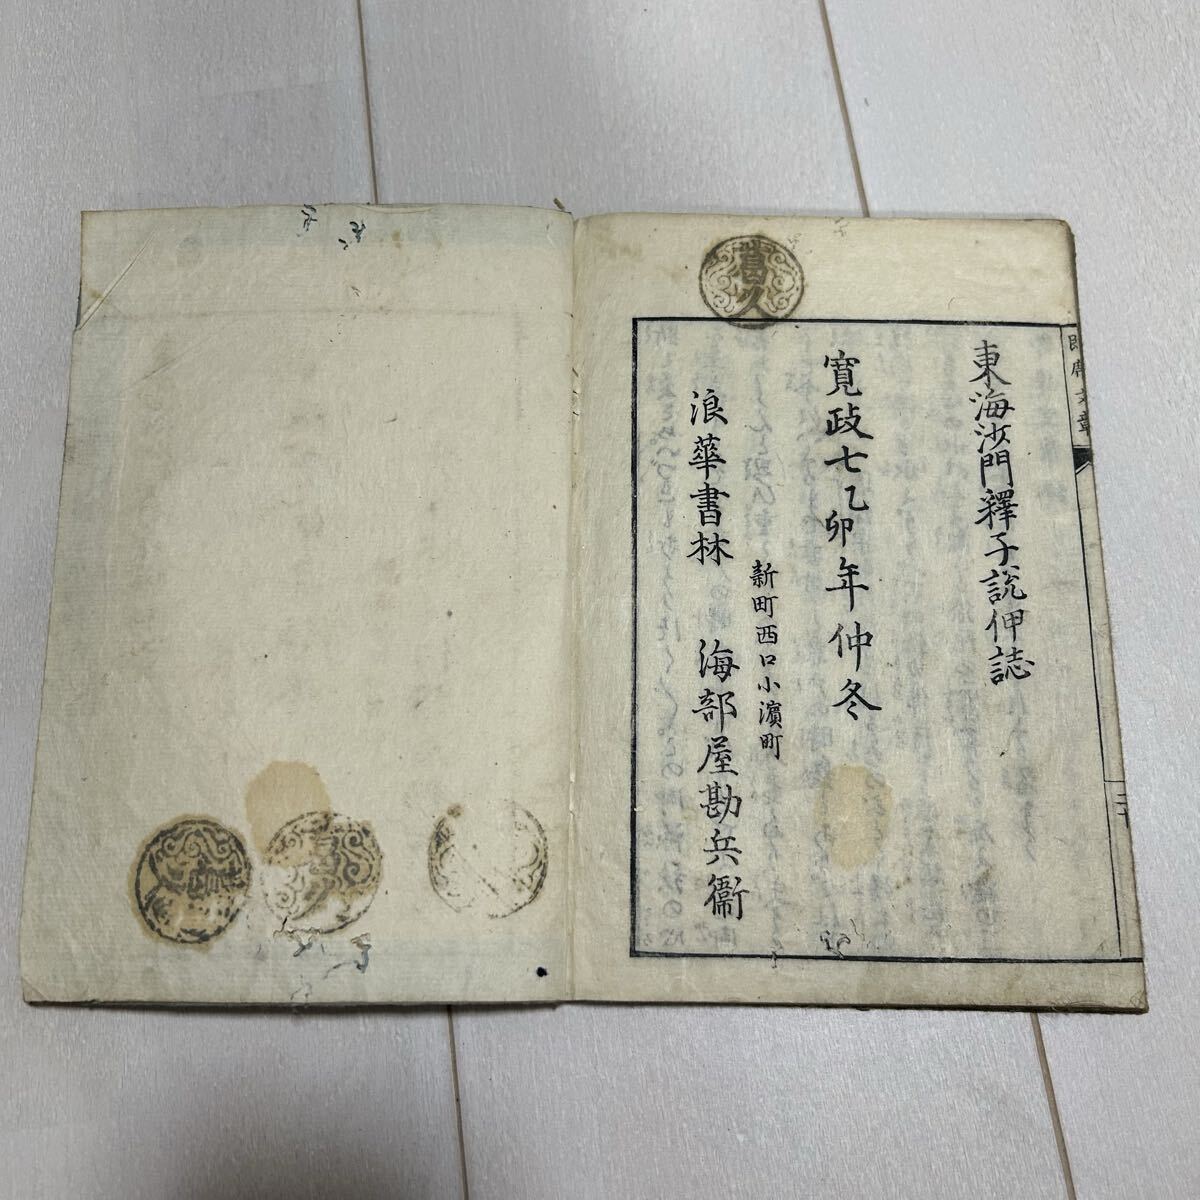 即席文章
東海沙門釋子説㑊誌
寛政七乙卯年仲冬
新町西口小濱町
浪華書林 海部屋勘兵衞